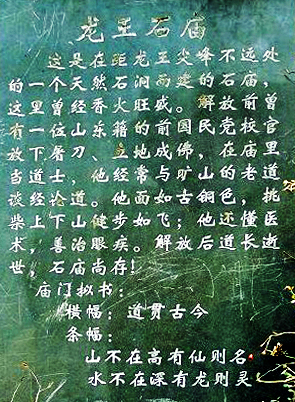 龙王石庙
这是在距龙王尖峰不远处
的一个天然石洞而建的石庙，
这里曾经香火旺盛。解放前曾
有一位山东籍的前国民党校官
放下屠刀、立地成佛，在庙里
当道士。他经常与旷山的老道
谈经论道。他面如古铜色，挑
柴上下山健步如飞；他还懂医
术，善治眼疾。解放后道长逝
世，石庙尚存！
庙门拟书：
横幅：道贯古今
条幅：
山不在高有仙则名
水不在深有龙则灵